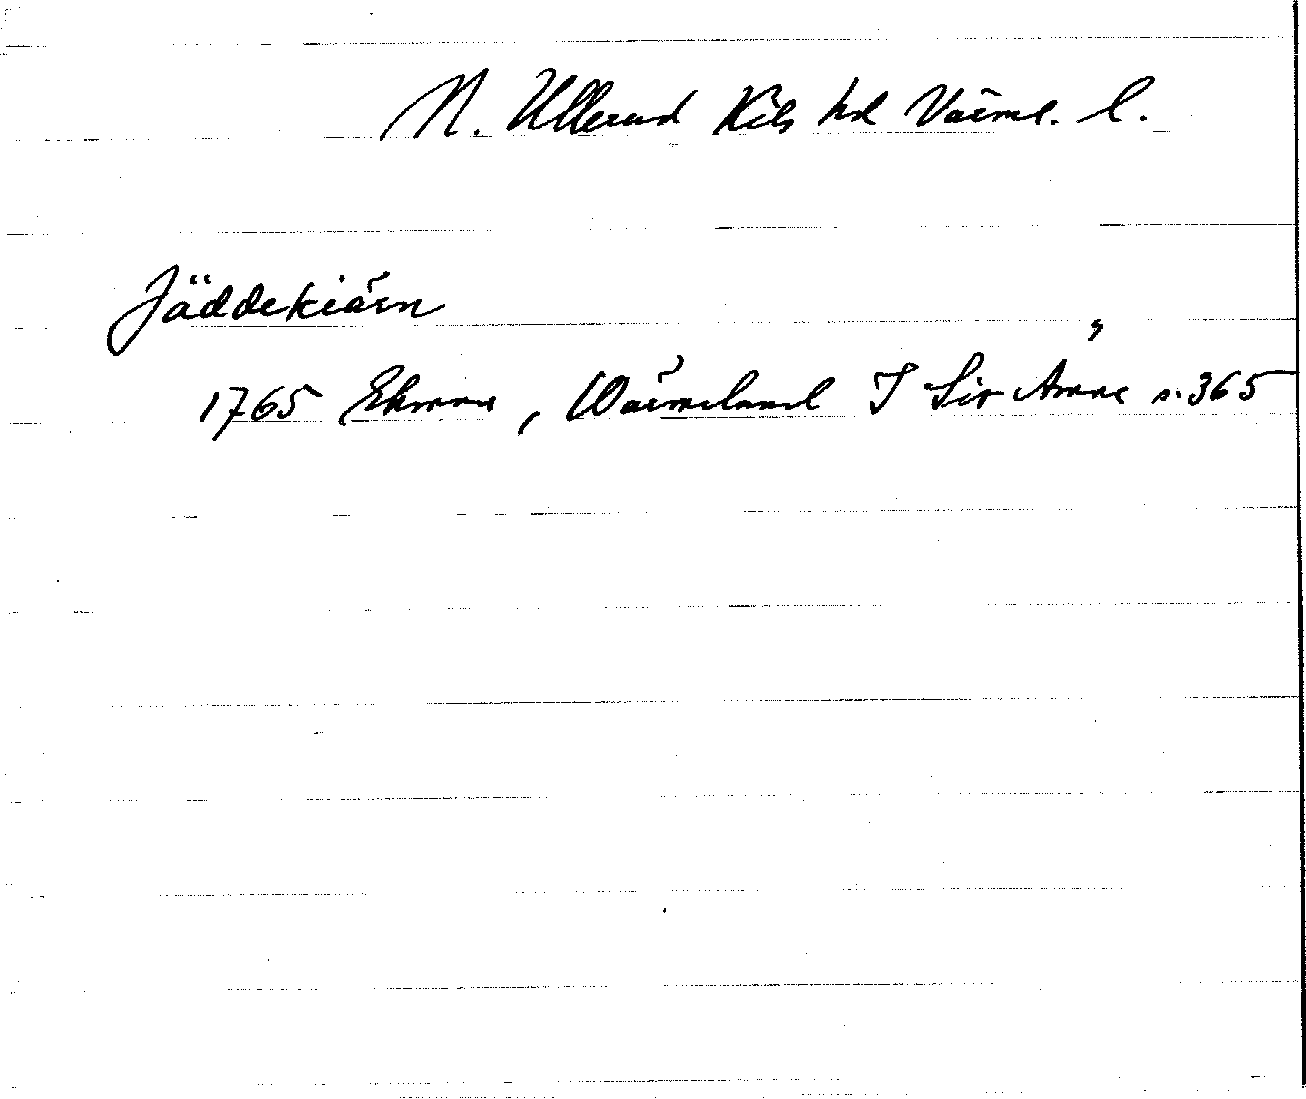 N. Ullerud Kils hd Värml. l.
Jäddekiärn
1765 Ekman, Wärmeland I Sit Ämne s. 365